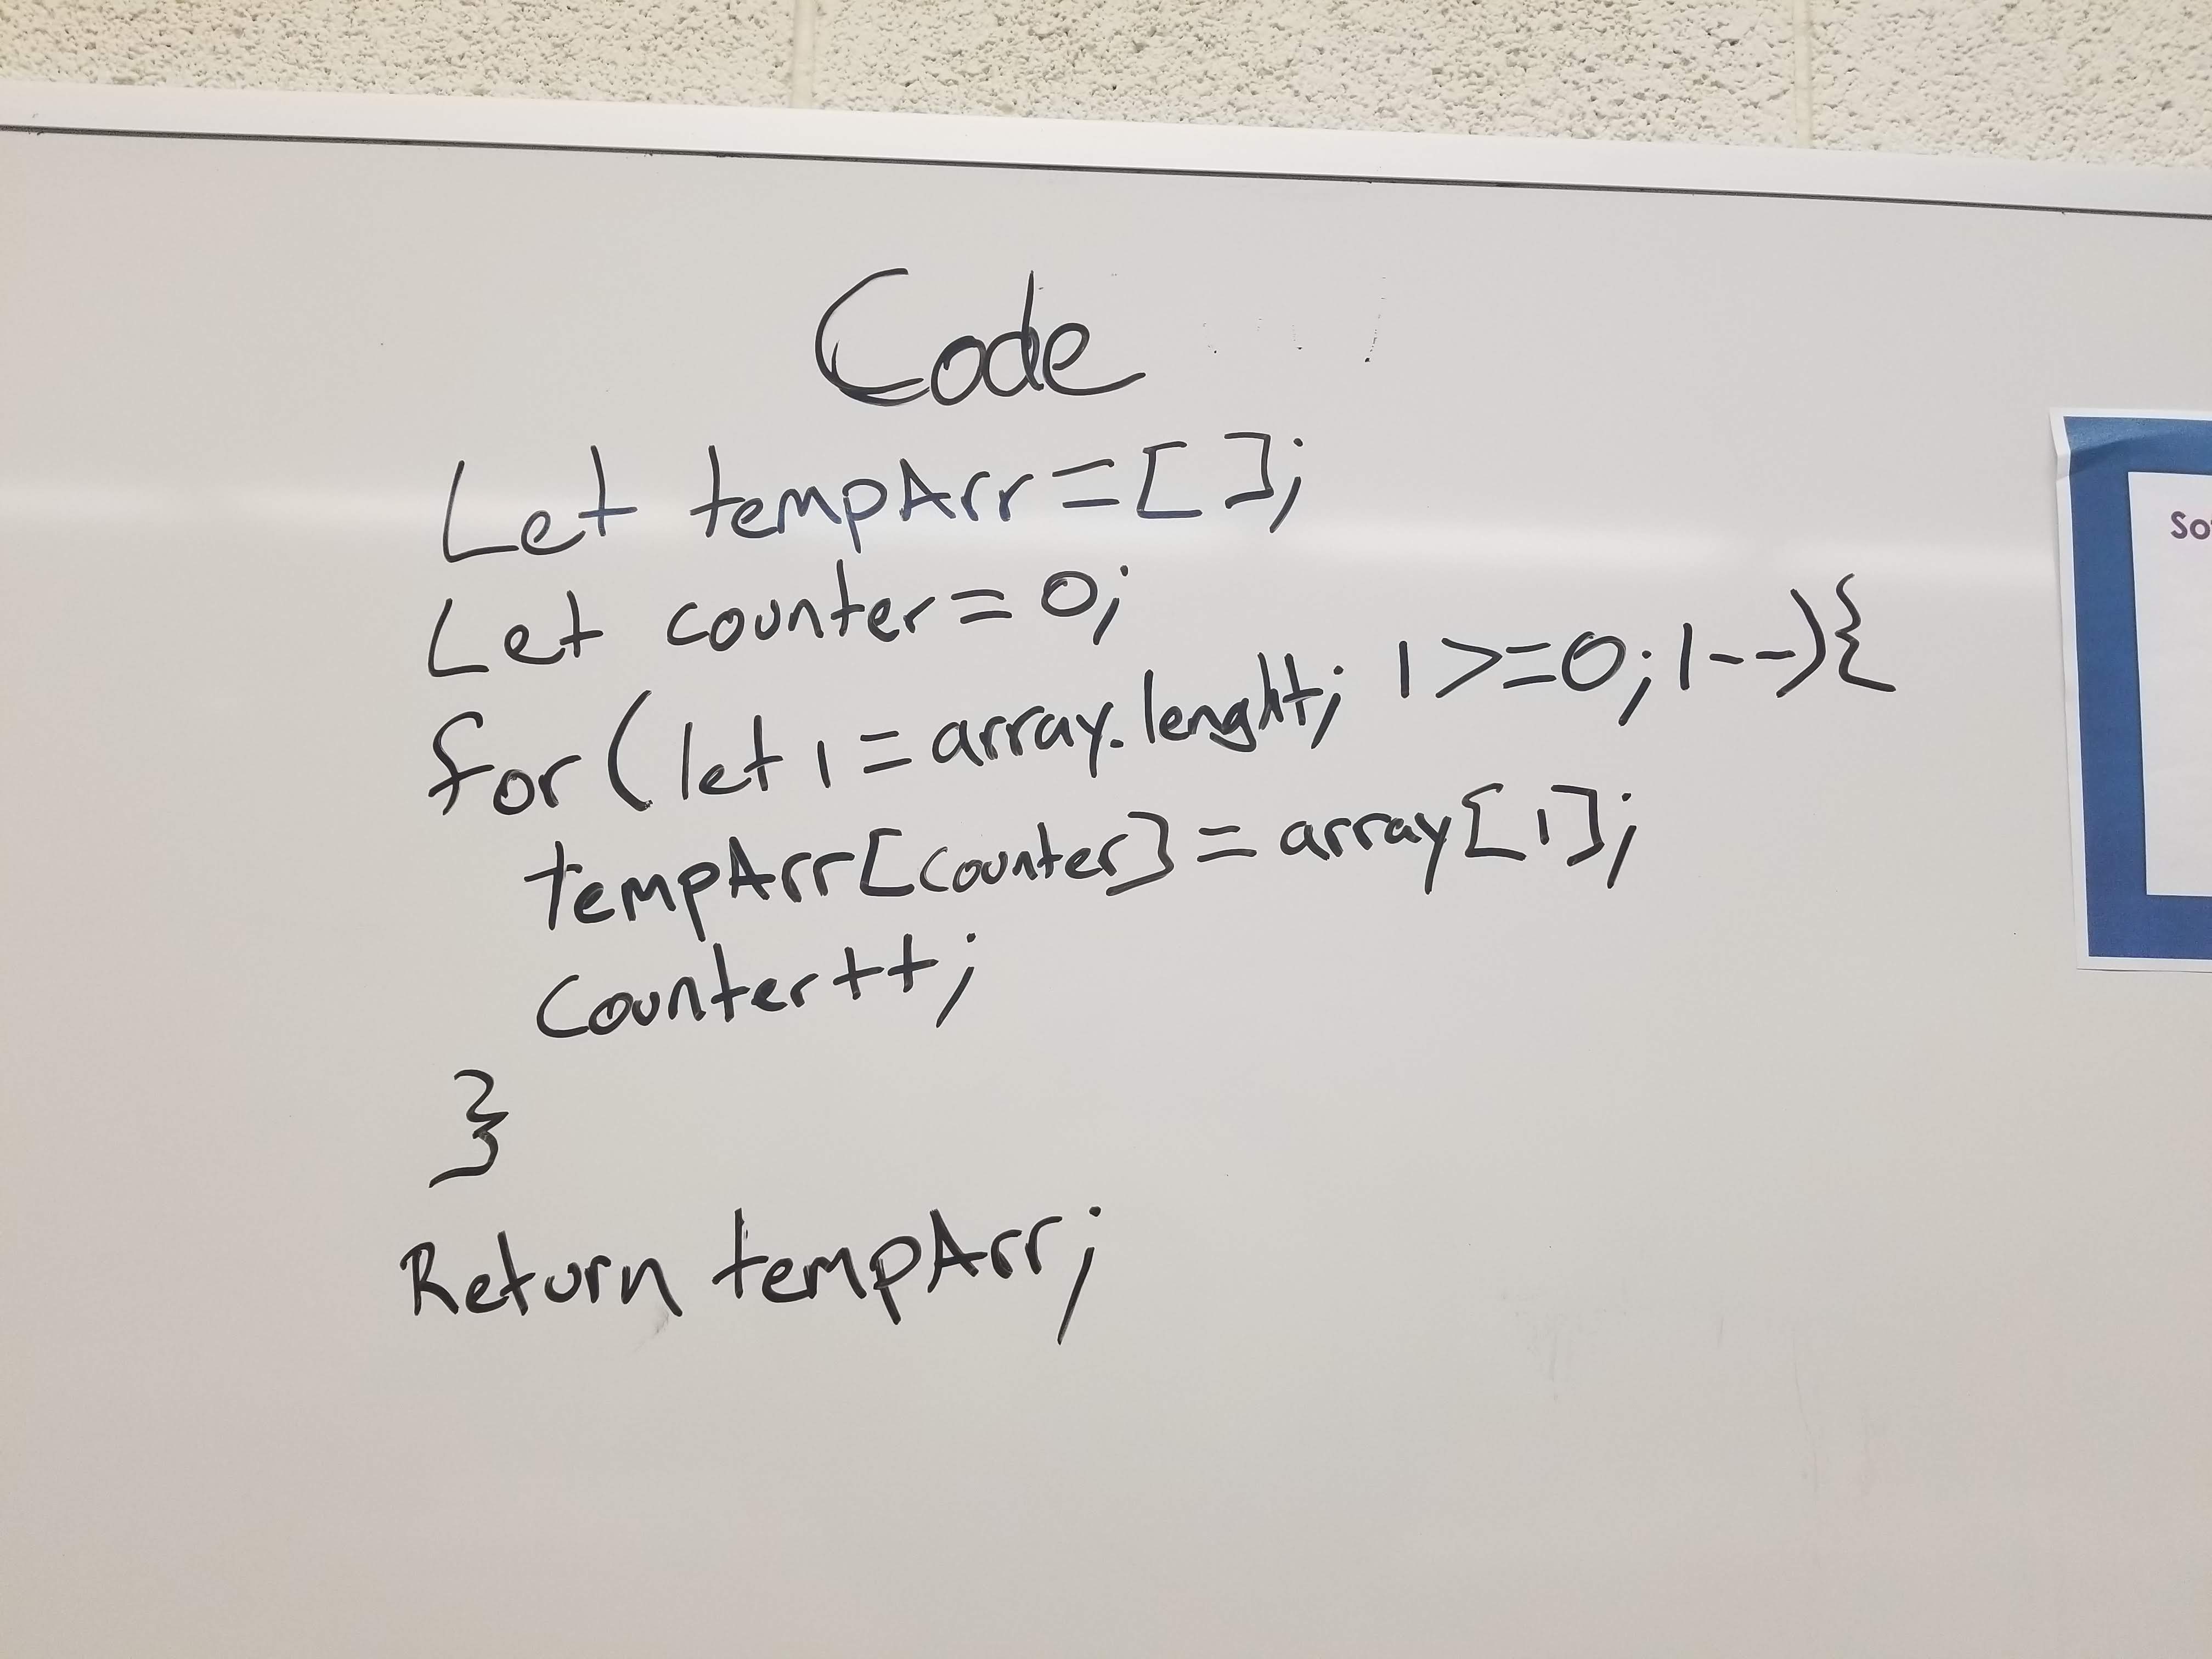 Code
Let tempArr = [ ];
Let counter = 0;
for ( let i = array.lenght; i >= 0; i--) {
tempArr[counter] = array[i];
Counter++;
}
Return tempArr;
So